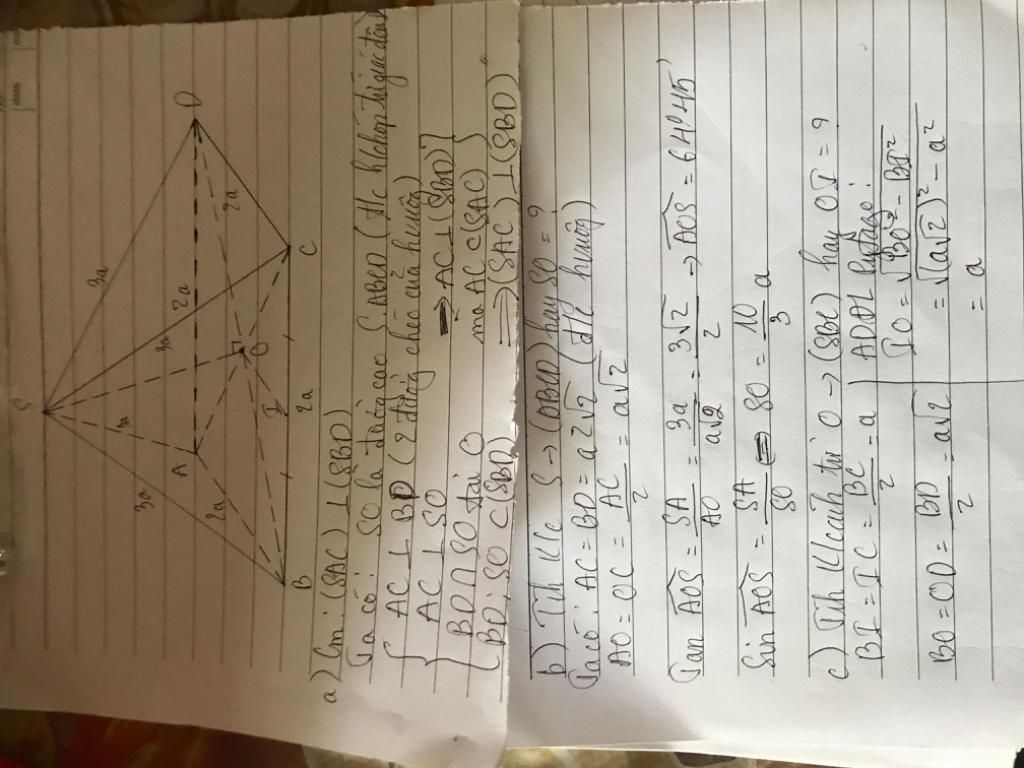 S
3a
3a
3a
3a
D
A
2a
2a
2a
O
I
2a
B
C
a) Cm: (SAC) ⊥ (SBD)
Ta có: SO là đường cao SABCD (t/c h/chóp tứ giác đều)
AC ⊥ BD (2 đường chéo của h vuông)
AC ⊥ SO ⇒ AC ⊥ (SBD)
BD ∩ SO tại O mà AC ⊂ (SAC)
BD; SO ⊂ (SBD) ⇒ (SAC) ⊥ (SBD)
b) Tính K/c S → (ABCD) hay SO = ?
Ta có: AC = BD = a2√2 (t/c h vuông)
AO = OC = AC/2 = a√2
Tan AOS = SA/AO = 3a/a√2 = 3√2/2 → AOS = 64°45'
Sin AOS = SA/SO ⇔ SO = 10/3 a
c) Tính K/cách từ O → (SBC) hay OI = ?
BI = IC = BC/2 = a
BO = OD = BD/2 = a√2
ADĐL Pytago:
IO = √BO² - BI²
= √(a√2)² - a²
= a